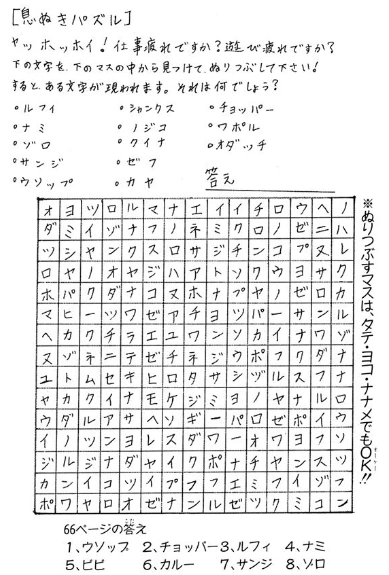 [息ぬきパズル]
ヤッホッホイ!仕事疲れですか?遊び疲れですか?
下の文字を、下のマスの中から見つけて、ぬりつぶして下さい!
すると、ある文字が現われます。それは何でしょう?
・ルフィ ・シャンクス ・チョッパー
・ナミ ・ノジコ ・ワポル
・ゾロ ・クイナ ・オダッチ
・サンジ ・ゼフ
・ウソップ ・カヤ 答え
オヨツロルマナエイイチロウヘノ
ダミイゾナフノネミクロノゼニハ
ツシャンクスロサジチンコプヌレ
ロヤノオヤジハアトソクウヨサク
ホパクダナコヌホナプヤノゼロカ
マヒーツワゼアチョツパーサンル
ヘカクチラエユワンソカイナワゾ
ヌゾネニテゼチネジウポフクダナ
ユトムセキヒロタサシヅルスフナ
ヤカクイナモケジミヨノヤナルロ
ウダルアサヘソギーパロゼポイウ
イノツンヨレスダワーオワヨフソ
ジルジナダヤイクポナチヤンスツ
カンイコツイプフフエミフイゾフ
ポワヤロオゼナンルゼツクミコン
※ぬりつぶすマスは、タテ・ヨコ・ナナメでもOK!!
66ページの答え
1、ウソップ 2、チョッパー 3、ルフィ 4、ナミ
5、ビビ 6、カルー 7、サンジ 8、ゾロ